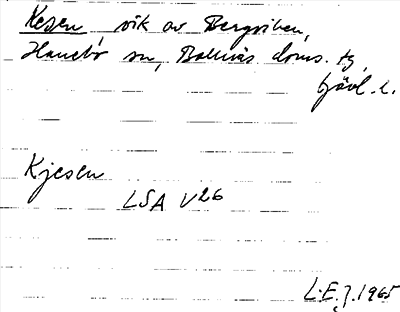 Kesen, vik av Bergviken,
Hanebo sn, Bollnäs doms. tg,
Gävl. l.
Kjesen
LSA V26
L.E.J. 1965